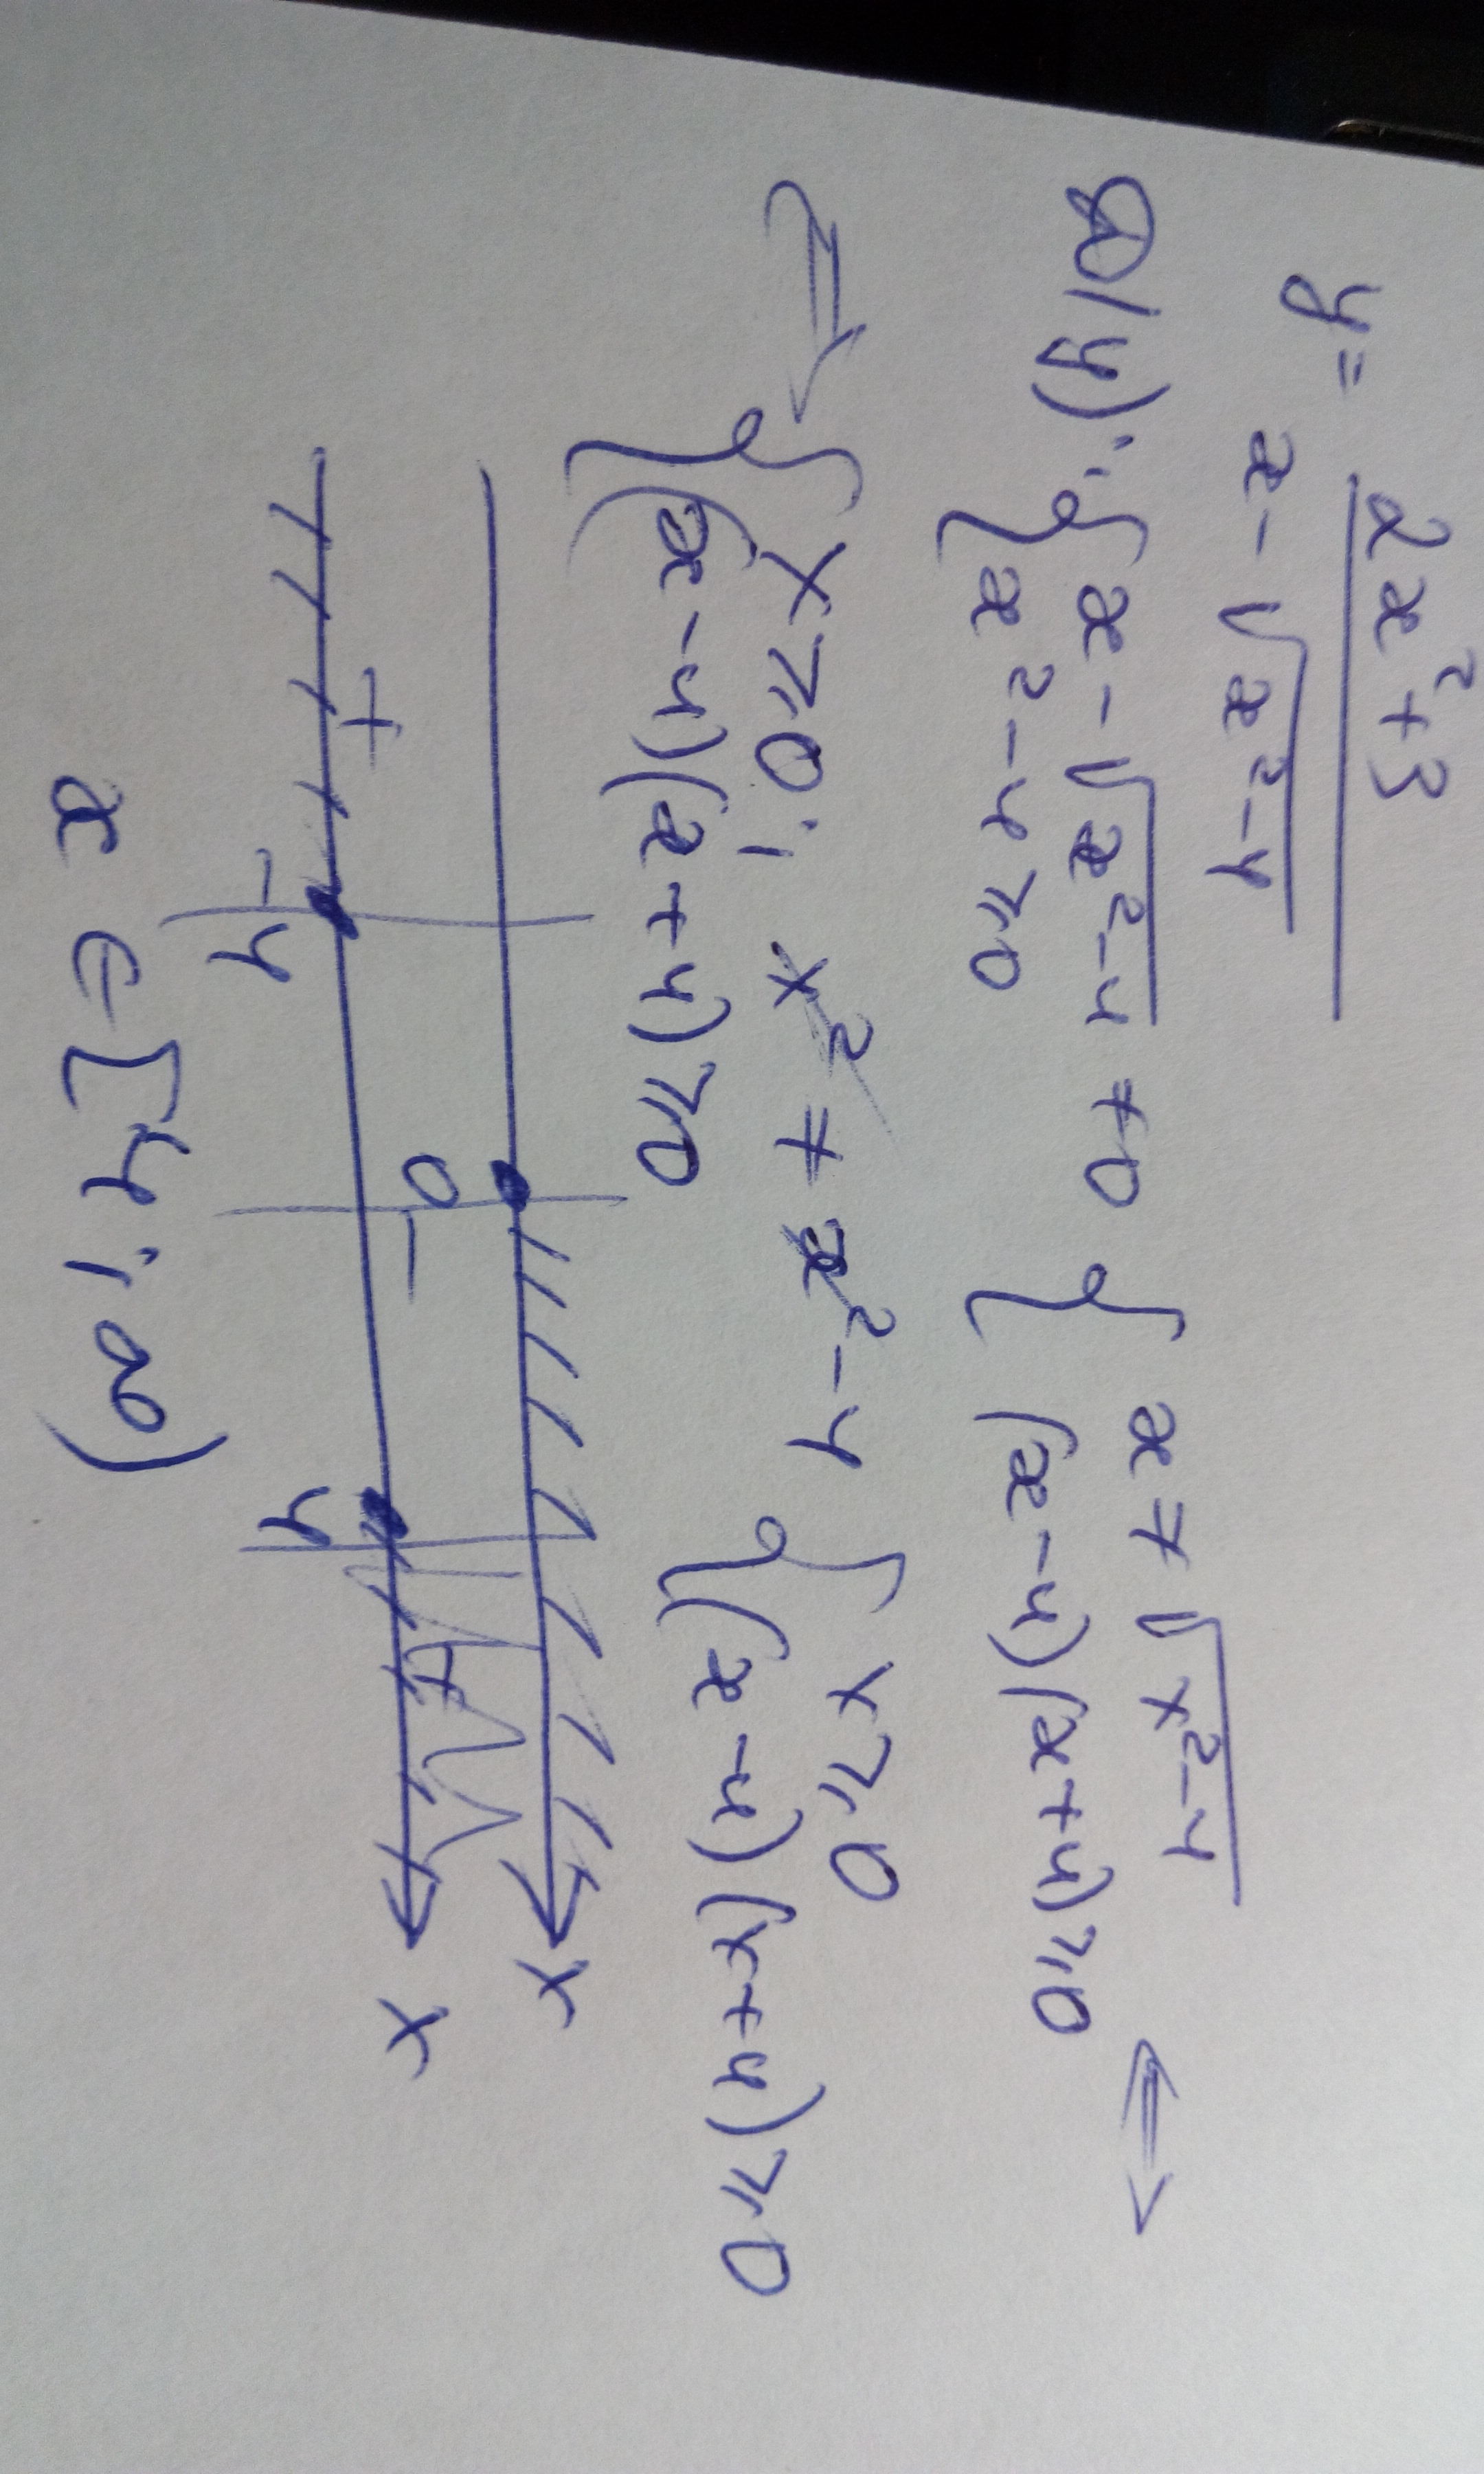 y = (2x²+3)/(x-√(x²-4))
D(y): { x-√(x²-4) ≠ 0 { x ≠ √(x²-4)
{ x²-4 ⩾ 0 { (x-4)(x+4) ⩾ 0 ⇒
⇒ { x ⩾ 0; x² ≠ x²-4 { x ⩾ 0
{ (x-4)(x+4) ⩾ 0 { (x-4)(x+4) ⩾ 0
0 x
+ - + x
-4 4
x ∈ [4; ∞)